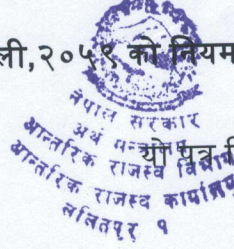 ली,२०५९ को नियम
नेपाल सरकार
अर्थ मन्त्रालय
आन्तरिक राजस्व विभाग
यो पत्र
आन्तरिक राजस्व कार्यालय
ललितपुर १